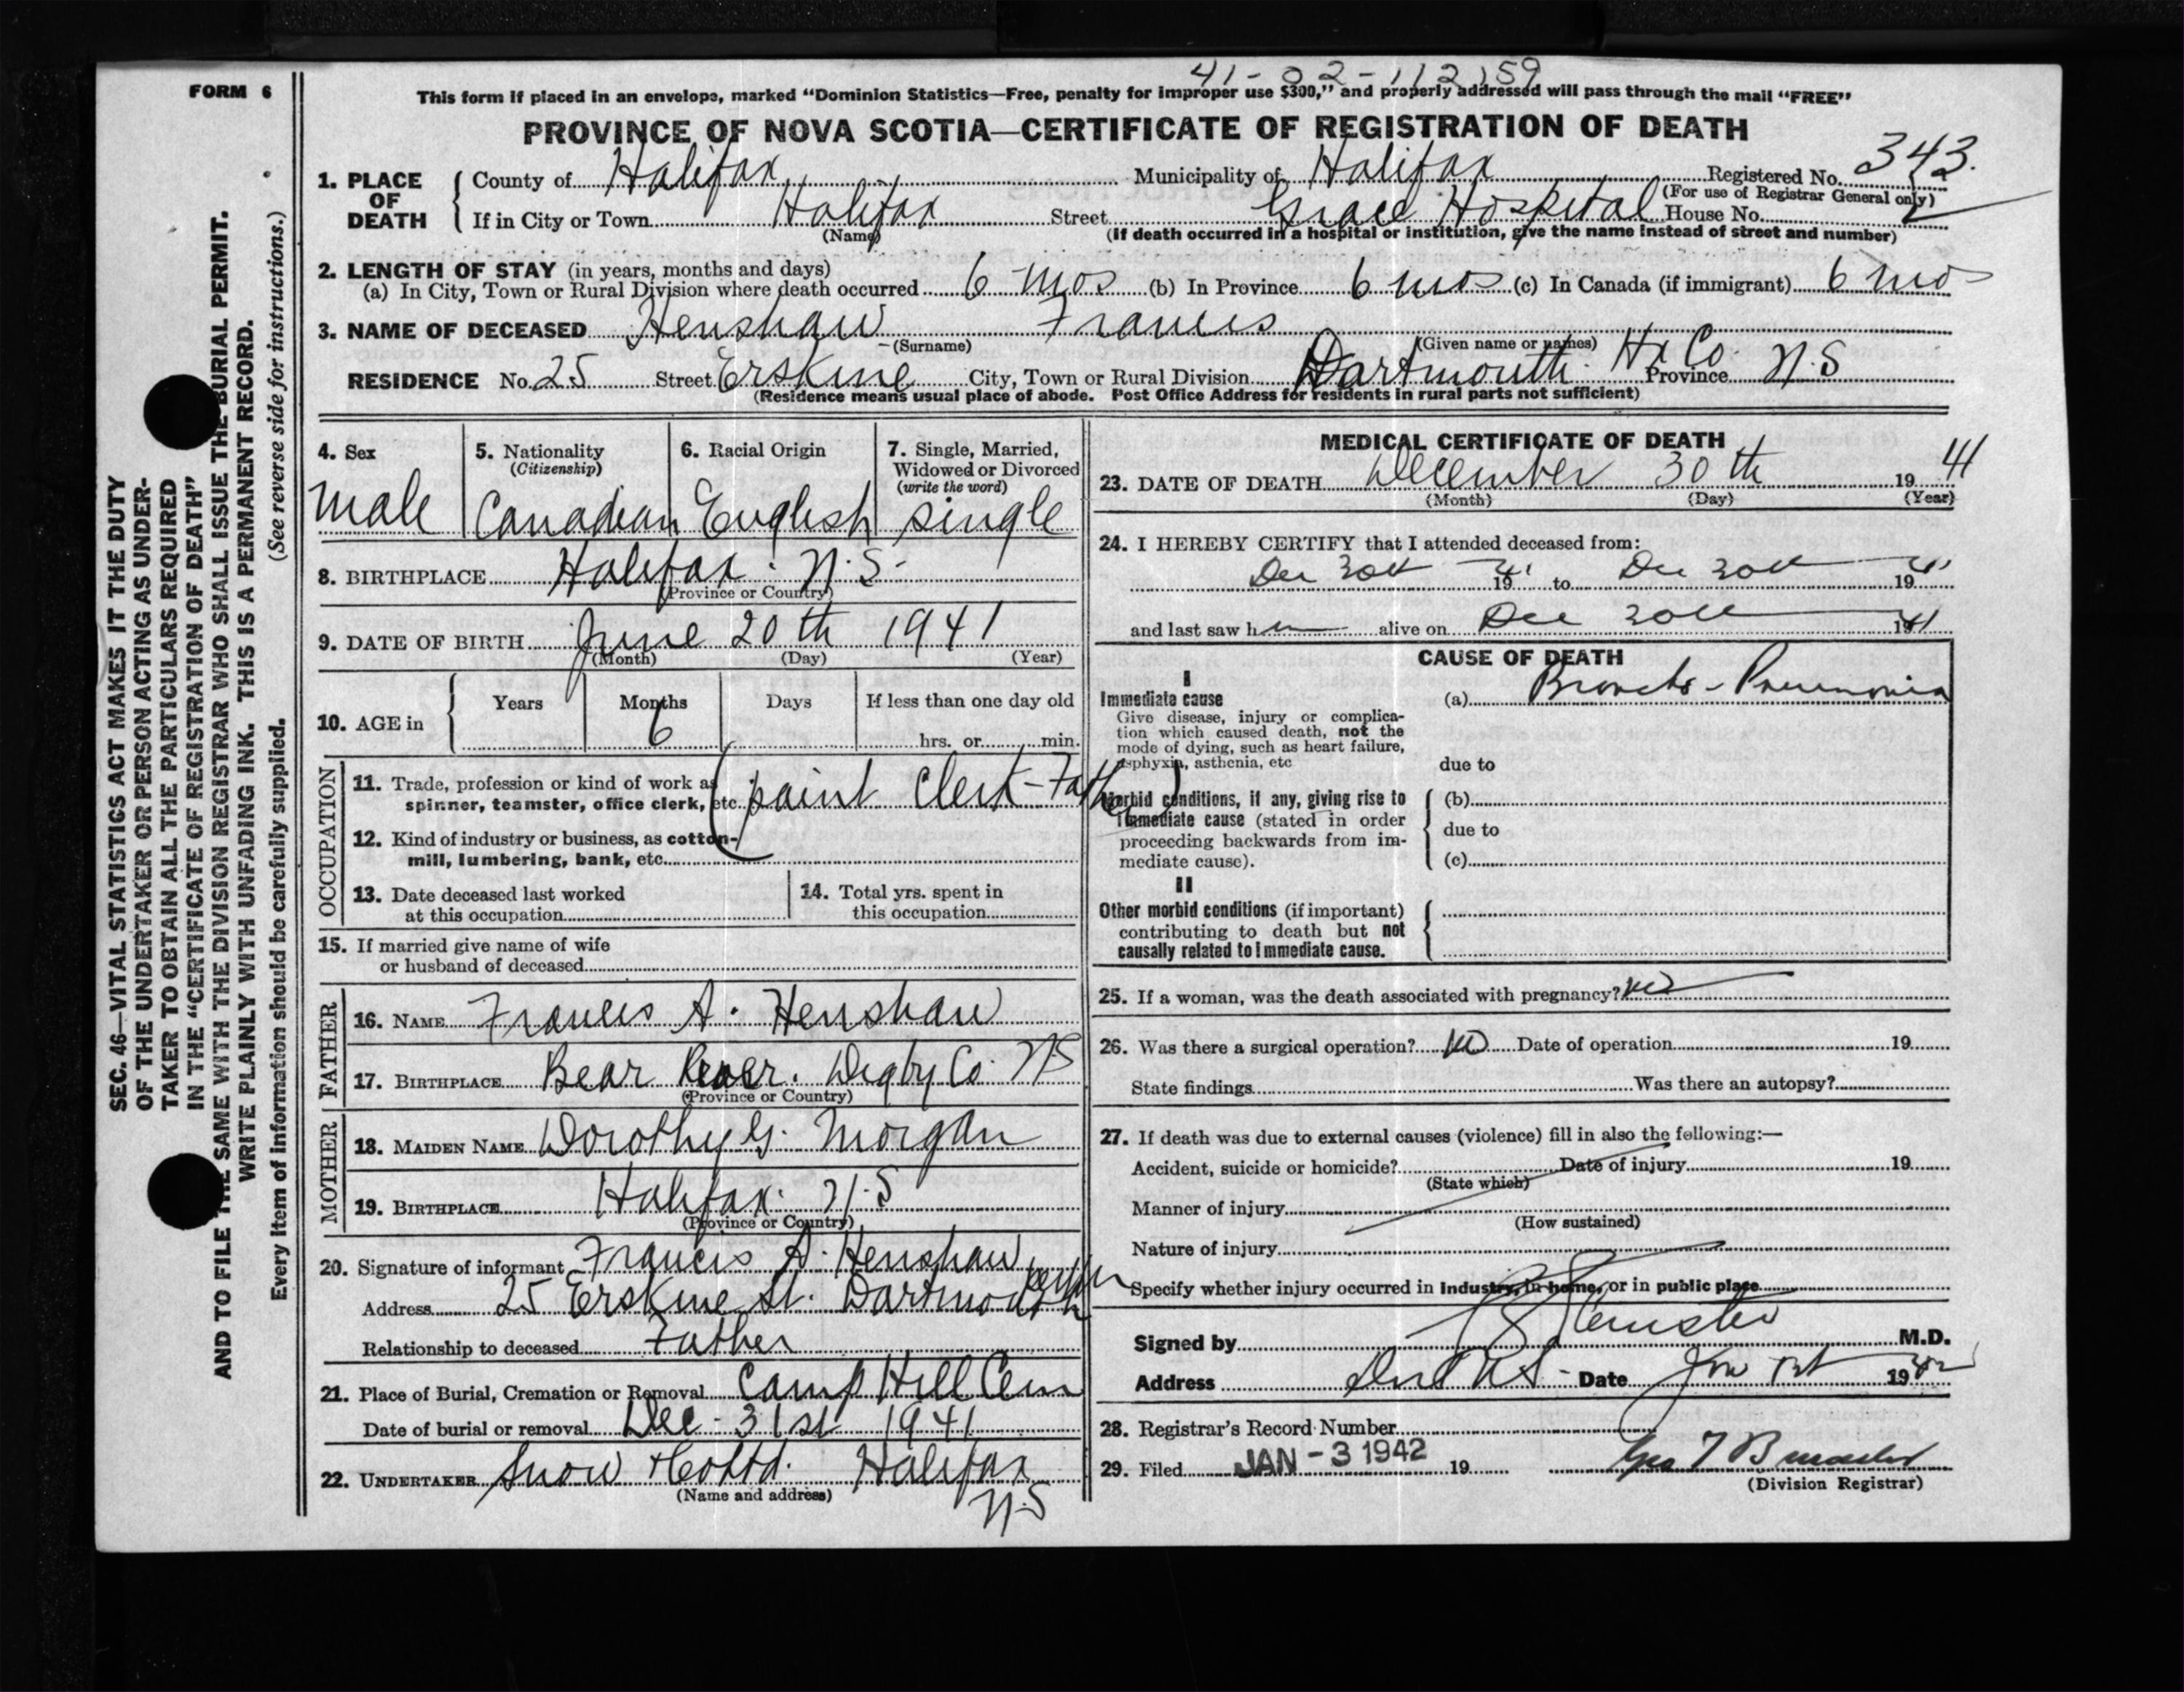 41-02-112159
FORM 6
This form if placed in an envelope, marked “Dominion Statistics—Free, penalty for improper use $300,” and properly addressed will pass through the mail “FREE”
PROVINCE OF NOVA SCOTIA—CERTIFICATE OF REGISTRATION OF DEATH
1. PLACE OF DEATH
County of Halifax Municipality of Halifax Registered No. 343.
(For use of Registrar General only)
If in City or Town Halifax Street Grace Hospital House No.
(Name) (If death occurred in a hospital or institution, give the name instead of street and number)
2. LENGTH OF STAY (in years, months and days)
(a) In City, Town or Rural Division where death occurred 6 mos (b) In Province 6 mos (c) In Canada (if immigrant) 6 mo
3. NAME OF DECEASED Henshaw Francis
(Surname) (Given name or names)
RESIDENCE No. 25 Street Erskine City, Town or Rural Division Dartmouth. Hx Co. Province N.S
(Residence means usual place of abode. Post Office Address for residents in rural parts not sufficient)
4. Sex
male
5. Nationality
(Citizenship)
Canadian
6. Racial Origin
English
7. Single, Married,
Widowed or Divorced
(write the word)
single
8. BIRTHPLACE Halifax. N.S.
(Province or Country)
9. DATE OF BIRTH June 20th 1941
(Month) (Day) (Year)
10. AGE in
Years Months Days If less than one day old
6 hrs. or min.
OCCUPATION
11. Trade, profession or kind of work as
spinner, teamster, office clerk, etc. (paint clerk - Father)
12. Kind of industry or business, as cotton-
mill, lumbering, bank, etc.
13. Date deceased last worked
at this occupation
14. Total yrs. spent in
this occupation
15. If married give name of wife
or husband of deceased
FATHER
16. NAME Francis A. Henshaw
17. BIRTHPLACE Bear River. Digby Co. NS
(Province or Country)
MOTHER
18. MAIDEN NAME Dorothy G. Morgan
19. BIRTHPLACE Halifax. N.S
(Province or Country)
20. Signature of informant Francis A. Henshaw
Address 25 Erskine St. Dartmouth
Relationship to deceased Father
21. Place of Burial, Cremation or Removal Camp Hill Cem
Date of burial or removal Dec. 31st 1941
22. UNDERTAKER Snow & Co Ltd. Halifax
(Name and address)
N.S
MEDICAL CERTIFICATE OF DEATH
23. DATE OF DEATH December 30th 1941
(Month) (Day) (Year)
24. I HEREBY CERTIFY that I attended deceased from:
Dec 30th 1941 to Dec 30th 1941
and last saw him alive on Dec 30th 1941
CAUSE OF DEATH
I
Immediate cause
Give disease, injury or complica-
tion which caused death, not the
mode of dying, such as heart failure,
asphyxia, asthenia, etc
(a) Broncho-Pneumonia
due to
Morbid conditions, if any, giving rise to
immediate cause (stated in order
proceeding backwards from im-
mediate cause).
(b)
due to
(c)
II
Other morbid conditions (if important)
contributing to death but not
causally related to immediate cause.
25. If a woman, was the death associated with pregnancy? no
26. Was there a surgical operation? no Date of operation 19
State findings Was there an autopsy?
27. If death was due to external causes (violence) fill in also the following:—
Accident, suicide or homicide? Date of injury 19
(State which)
Manner of injury
(How sustained)
Nature of injury
Specify whether injury occurred in industry, in home, or in public place
Signed by M.D.
Address N.S. Date Jan 1st 1942
28. Registrar's Record Number
29. Filed JAN -3 1942 19
(Division Registrar)
SEC. 46—VITAL STATISTICS ACT MAKES IT THE DUTY
OF THE UNDERTAKER OR PERSON ACTING AS UNDER-
TAKER TO OBTAIN ALL THE PARTICULARS REQUIRED
IN THE “CERTIFICATE OF REGISTRATION OF DEATH”
AND TO FILE THE SAME WITH THE DIVISION REGISTRAR WHO SHALL ISSUE THE BURIAL PERMIT.
WRITE PLAINLY WITH UNFADING INK. THIS IS A PERMANENT RECORD.
Every item of information should be carefully supplied. (See reverse side for instructions.)